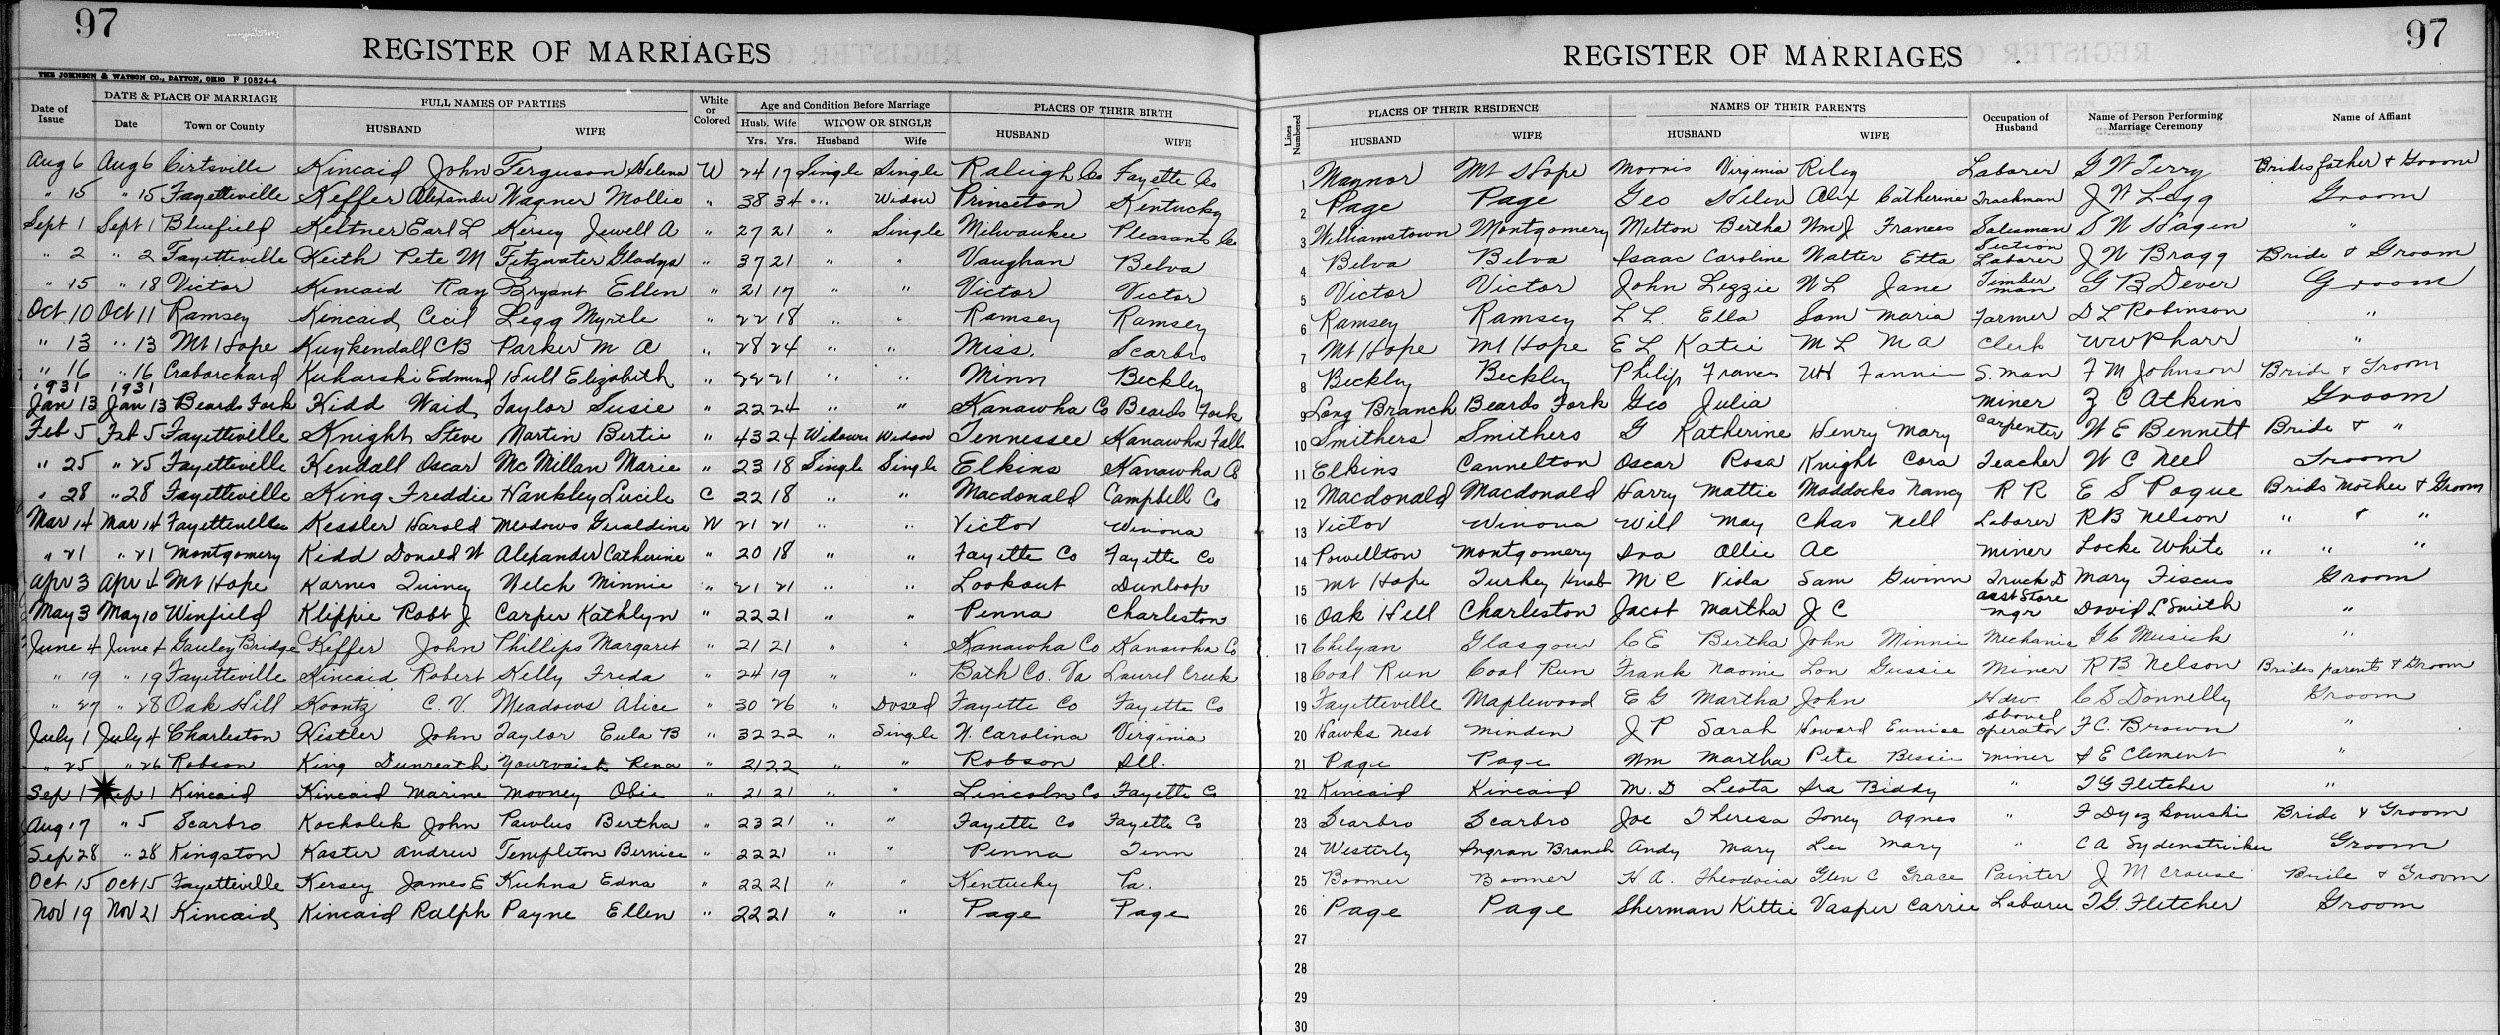 97
REGISTER OF MARRIAGES
THE JOHNSON & WATSON CO., DAYTON, OHIO F 10824-4
REGISTER OF MARRIAGES
97
Date of Issue DATE & PLACE OF MARRIAGE Date Town or County FULL NAMES OF PARTIES HUSBAND WIFE White or Colored Age and Condition Before Marriage Husb. Yrs. Wife Yrs. WIDOW OR SINGLE Husband Wife PLACES OF THEIR BIRTH HUSBAND WIFE Lines Numbered PLACES OF THEIR RESIDENCE HUSBAND WIFE NAMES OF THEIR PARENTS HUSBAND WIFE Occupation of Husband Name of Person Performing Marriage Ceremony Name of Affiant
Aug 6 Aug 6 Cirtsville Kincaid John Ferguson Helena W 24 17 Single Single Raleigh Co Fayette Co 1 Maynor Mt Hope Morris Virginia Riley Laborer G W Terry Brides father & Groom
" 15 " 15 Fayetteville Keffer Alexander Wagner Mollie " 38 34 " Widow Princeton Kentucky 2 Page Page Geo Helen Alix Catherine Trackman J W Legg Groom
Sept 1 Sept 1 Bluefield Keltner Earl L Kersey Jewell A " 27 21 Single Milwaukee Pleasants Co 3 Williamstown Montgomery Milton Bertha Wm J Frances Salesman S W Hagen "
" 2 " 2 Fayetteville Keith Pete M Fitzwater Gladys " 37 21 " " Vaughan Belva 4 Belva Belva Isaac Caroline Walter Etta Section Laborer J W Bragg Bride & Groom
" 15 " 18 Victor Kincaid Ray Bryant Ellen " 21 17 " " Victor Victor 5 Victor Victor John Lizzie W L Jane Timber man G B Dever Groom
Oct 10 Oct 11 Ramsey Kincaid Cecil Legg Myrtle " 22 18 " " Ramsey Ramsey 6 Ramsey Ramsey L L Ella Sam Maria Farmer D L Robinson "
" 13 " 13 Mt Hope Kuykendall C B Parker M A " 28 24 " " Miss. Scarbro 7 Mt Hope Mt Hope E L Katie M L M A Clerk W W Pharr "
" 16 " 16 Craborchard Kuharski Edmund Hull Elizabeth " 22 21 " " Minn Beckley 8 Beckley Beckley Philip Frances W H Fannie S. man F M Johnson Bride & Groom
1931 1931
Jan 13 Jan 13 Beards Fork Kidd Waid Taylor Susie " 22 24 " " Kanawha Co Beards Fork 9 Long Branch Beards Fork Geo Julia Miner Z C Atkins Groom
Feb 5 Feb 5 Fayetteville Knight Steve Martin Bertie " 43 24 Widower Widow Tennessee Kanawha Falls 10 Smithers Smithers G Katherine Henry Mary Carpenter W E Bennett Bride & "
" 25 " 25 Fayetteville Kendall Oscar McMillan Marie " 23 18 Single Single Elkins Kanawha Co 11 Elkins Cannelton Oscar Rosa Knight Cora Teacher W C Neel Groom
" 28 " 28 Fayetteville King Freddie Hankley Lucile C 22 18 " " Macdonald Campbell Co 12 Macdonald Macdonald Harry Mattie Maddocks Nancy R R E S Pogue Brids Mother & Groom
Mar 14 Mar 14 Fayetteville Kessler Harold Meadows Geraldine W 21 21 " " Victor Winona 13 Victor Winona Will May Chas Nell Laborer R B Nelson " " "
" 21 " 21 Montgomery Kidd Donald W Alexander Catherine " 20 18 " " Fayette Co Fayette Co 14 Powellton Montgomery Ira Ollie A C Miner Locke White " " "
Apr 3 Apr 4 Mt Hope Karnes Quincy Welch Minnie " 21 21 " " Lookout Dunloop 15 Mt Hope Turkey Knob M C Viola Sam Gwinn Truck D Mary Fiscus Groom
May 3 May 10 Winfield Klippie Robt J Carper Kathlyn " 22 21 " " Penna Charleston 16 Oak Hill Charleston Jacob Martha J C Asst Store Mgr David L Smith "
June 4 June 4 Gauley Bridge Keffer John Phillips Margaret " 21 21 " " Kanawha Co Kanawha Co 17 Chelyan Glasgow C E Bertha John Minnie Mechanic G C Musick "
" 19 " 19 Fayetteville Kincaid Robert Kelly Frida " 24 19 " " Bath Co. Va Laurel Creek 18 Coal Run Coal Run Frank Naomi Lon Gussie Miner R B Nelson Brides parents & Groom
" 27 " 28 Oak Hill Koontz C. V. Meadows Alice " 30 26 " Dvsed Fayette Co Fayette Co 19 Fayetteville Maplewood E G Martha John Hdw. C S Donnelly Groom
July 1 July 4 Charleston Kistler John Taylor Eula B " 32 22 " Single N. Carolina Virginia 20 Hawks Nest Minden J P Sarah Howard Eunice Shovel operator F C. Brown "
" 25 " 26 Robson King Dunreath Yourvaish Rena " 21 22 " " Robson Ill. 21 Page Page Wm Martha Pete Bessie Miner I E Clement "
Sep 1 Sep 1 Kincaid Kincaid Marine Mooney Obie " 21 21 " " Lincoln Co Fayette Co 22 Kincaid Kincaid M. D Leota Ira Biddy " T G Fletcher "
Aug 17 " 5 Scarbro Kocholek John Pawlus Bertha " 23 21 " " Fayette Co Fayette Co 23 Scarbro Scarbro Joe Theresa Toney Agnes " F Dyezkowski Bride & Groom
Sep 28 " 28 Kingston Kaster Andrew Templeton Bernice " 22 21 " " Penna Tenn 24 Westerly Ingran Branch Andy Mary Lee Mary " C A Sydenstricker Groom
Oct 15 Oct 15 Fayetteville Kersey James E Kuhns Edna " 22 21 " " Kentucky Pa. 25 Boomer Boomer H. A. Theodocia Glen C Grace Painter J M Crouse Bride & Groom
Nov 19 Nov 21 Kincaid Kincaid Ralph Payne Ellen " 22 21 " " Page Page 26 Page Page Sherman Kittie Vasper Carrie Laborer T G. Fletcher Groom
27
28
29
30